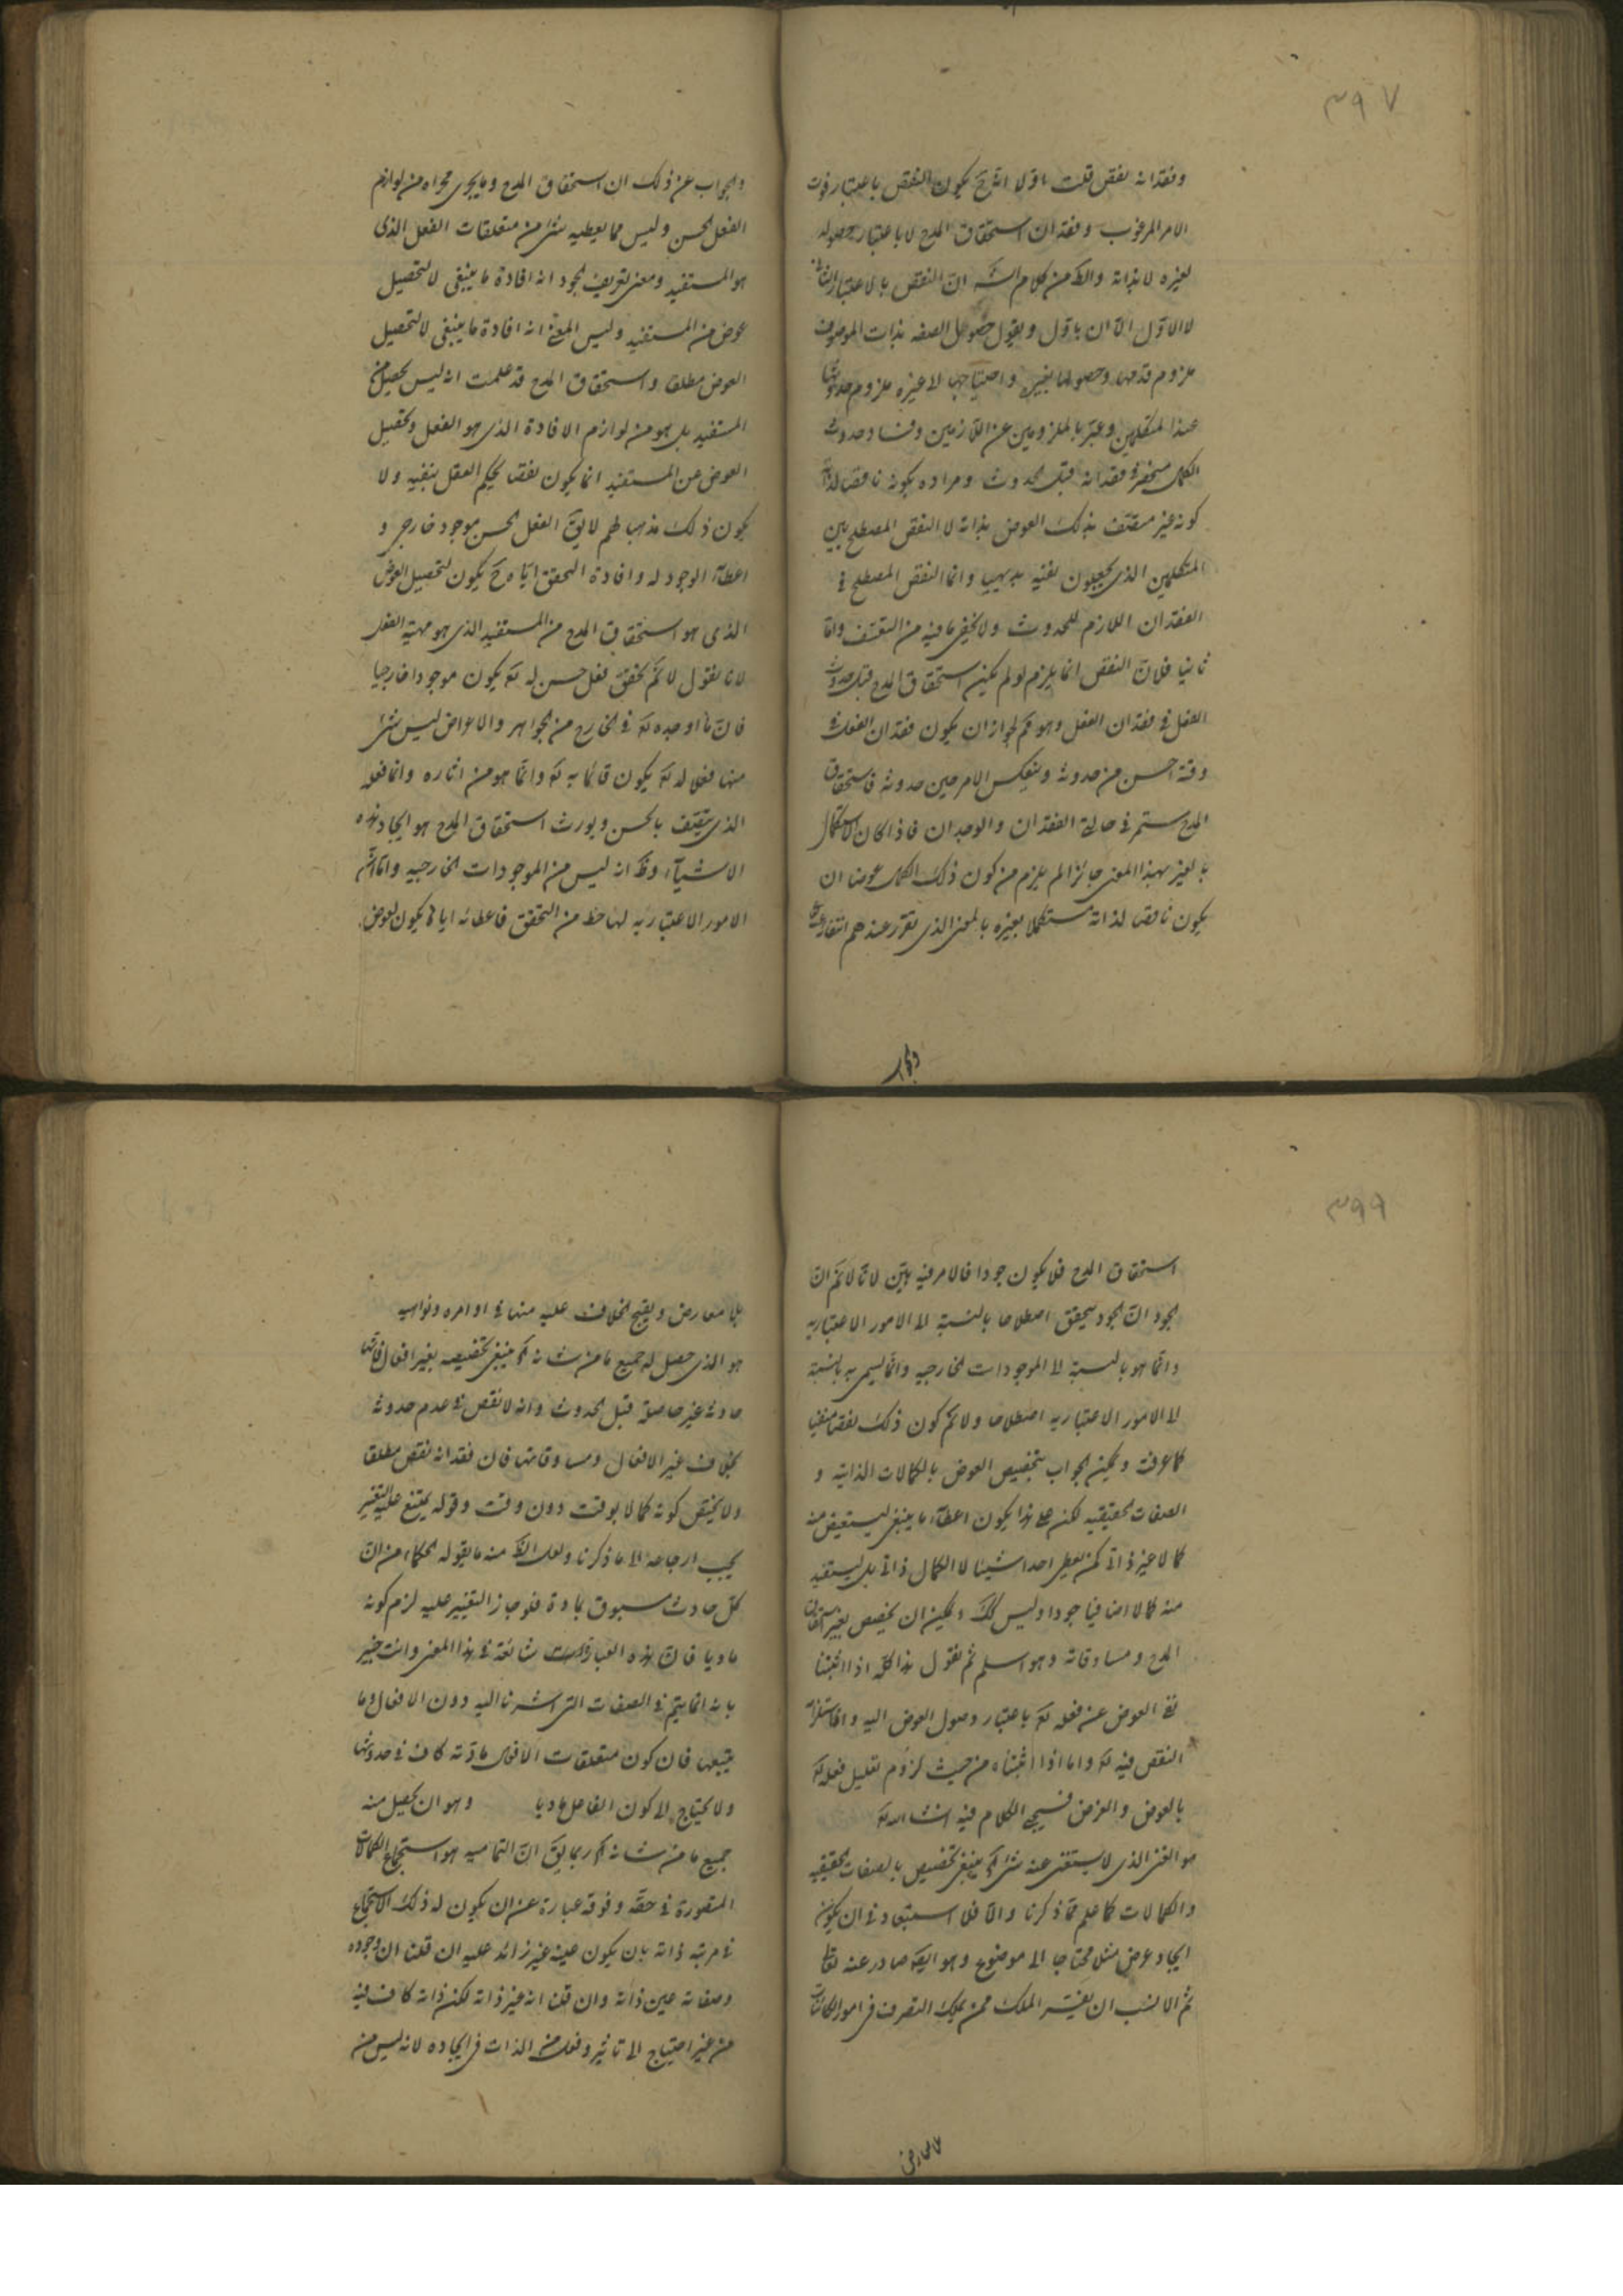 ٣٩٧
وفقدانه نقص قلت اولا انه ح يكون النقص باعتبار فوت
الامر المرغوب وفقدان استحقاق المدح لا باعتبار حصوله
لغيره لا بذاته والظ من كلام الش ان النقص بالاعتبار الثانى
لا الاول الا ان ياول ويقول حصول الصفه بذات الموصوف
ملزوم قدمها وحصولها بغيره واحتياجها الا غيره ملزوم حدوثها
عند المتكلمين وعبّر بالملزومين عن اللازمين وفساد حدوث
الكل منحصر فى فقدانه قبل الحدوث ومراده بكونه ناقصا لذاته
كونه غير متصف بذلك العوض بذاته لا النقص المصطلح بين
المتكلمين الذى يجعلون نفيه بديهيا وانما النقص المصطلح فى
الفقدان اللازم للحدوث ولا يخفى ما فيه من التعسف واما
ثانيا فلان النقص انما يلزم لو لم يكن استحقاق المدح قبل حدوث
الفعل فى فقدان الفعل وهو مم لجواز ان يكون فقدان الفعل فى
وقته احسن من حدوثه وينعكس الامر حين حدوثه فاستحقاق
المدح مستمر فى حالة الفقدان والوجدان فاذا كان الاستكمال
بالغير بهذا المعنى جائزا لم يلزم من كون ذلك الكمال عوضا ان
يكون ناقصا لذاته مستكملا بغيره بالمعنى الذى تقرر عندهم انتفاؤه
والجواب
والجواب عن ذلك ان استحقاق المدح وما يجرى مجراه من لوازم
الفعل الحسن وليس مما يعطيه شئ من متعلقات الفعل الذى
هو المستفيد ومعنى تعريف الجود انه افادة ما ينبغى لا لتحصيل
عوض من المستفيد وليس المعنى انه افادة ما ينبغى لا لتحصيل
العوض مطلقا واستحقاق المدح قد علمت انه ليس يحصل من
المستفيد بل هو من لوازم الافادة الذى هو الفعل وتحصيل
العوض عن المستفيد انما يكون نقصا يحكم العقل بنفيه ولا
يكون ذلك مذهبا لهم لا يق الفعل الحسن موجود خارجى و
اعطاء الوجود له وافادة التحقق اياه ح يكون لتحصيل العوض
الذى هو استحقاق المدح من المستفيد الذى هو مهية الفعل
لانا نقول لانم تحقق فعل حسن له تع يكون موجودا خارجيا
فان ما اوجده تع فى الخارج من الجواهر والاعراض ليس شئ
منها فعلا له تع يكون قائما به تع وانما هو من اثاره وانما فعله
الذى يتصف بالحسن ويورث استحقاق المدح هو ايجاد هذه
الاشياء وظ انه ليس من الموجودات الخارجيه واما ان
الامور الاعتباريه لها حظ من التحقق فاعطائه اياها يكون لعوض
٣٩٩
استحقاق المدح فلا يكون جودا فالامر فيه بيّن لانا لانم ان
الجود ان الجود يتحقق اصطلاحا بالنسبة الا الامور الاعتباريه
وانما هو بالنسبة الا الموجودات الخارجيه وانما يسمى به بالنسبة
الا الامور الاعتباريه اصطلاحا ولانم كون ذلك نقصا منفيا
كما عرفت ويمكن الجواب بتخصيص العوض بالكمالات الذاتيه و
الصفات الحقيقيه لكن على هذا يكون اعطاء ما ينبغى ليستعيض منه
كمالا غير ذاتى كمن يعطى احدا شيئا لا الكمال ذاتى بل ليستفيد
منه كمالا اضافيا جودا وليس كك ويمكن ان يخصص بغير استحقاق
المدح ومساوقاته وهو اسلم ثم نقول هذا كله اذا اثبتنا
نفى العوض عن فعله تع باعتبار وصول العوض اليه واستلزامه
النقص فيه تع واما اذا اثبتناه من حيث لزوم تعليل فعله تع
بالعوض والغرض فسيجئ الكلام فيه انشاء الله تع
هو الغنى الذى لا يستغنى عنه شئ اه ينبغى تخصيص بالصفات الحقيقيه
والكمالات كما علم مما ذكرنا والا فلا استبعاد فى ان يكون
ايجاد عرض مثلا محتاجا الى موضوع وهو ايضا صادر عنه تعالى
ثم الانسب ان يفسر الملك بمن يملك التصرف فى امور الكائنات
بلا معارض
بلا معارض ويقبح الخلاف عليه منها فى اوامره ونواهيه
هو الذى حصل له جميع ما من شانه اه ينبغى تخصيصه بغير افعال فانها
حادثه غير حاصلة قبل الحدوث وانه لا نقص فى عدم حدوثه
بخلاف غير الافعال ومساوقاتها فان فقدانه نقص مطلقا
ولا يختص كونه كمالا بوقت دون وقت وقوله يمتنع عليه التغير
يجب ارجاعه الا ما ذكرنا ولعل الظ منه ما يقوله الحكماء من ان
كل حادث مسبوق بمادة فلو جاز التغير عليه لزم كونه
ماديا فان هذه العبارات شائعة فى هذا المعنى وانت خبير
بانه انما يتم فى الصفات التى اشرنا اليه دون الافعال وما
يتبعها فان كون متعلقات الافعال مادية كاف فى حدوثها
ولا يحتاج الا كون الفاعل ماديا وهو ان يحصل منه
جميع ما من شانه اه ربما يق ان التماميه هو استجماع الكمالات
المتصورة فى حقه وفوقه عبارة عن ان يكون له ذلك الاستجماع
فى مرتبة ذاته بان يكون عينه غير زائد عليه ان قلنا ان وجوده
وصفاته عين ذاته وان قلنا انه غير ذاته لكن ذاته كاف فيه
من غير احتياج الا تاثير وفعل من الذات فى ايجاده لانه ليس من